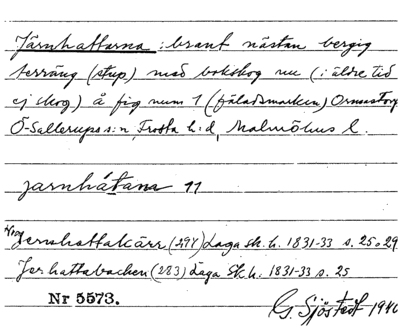 Järnhattarna: brant nästan bergig
terräng (stup) med bokskog nu (i äldre tid
ej skog) å fig num 1 (fäladsmarken) Ormastorp
Ö-Sallerups s:n, Frosta h:d, Malmöhus l.
jarnhátana 11
Jernhattakärr (294) Laga sk. h. 1831-33 s. 25 o 29
Jerhattabacken (283) Laga Sk. h. 1831-33 s. 25
Nr 5573.
G. Sjöstedt 1940